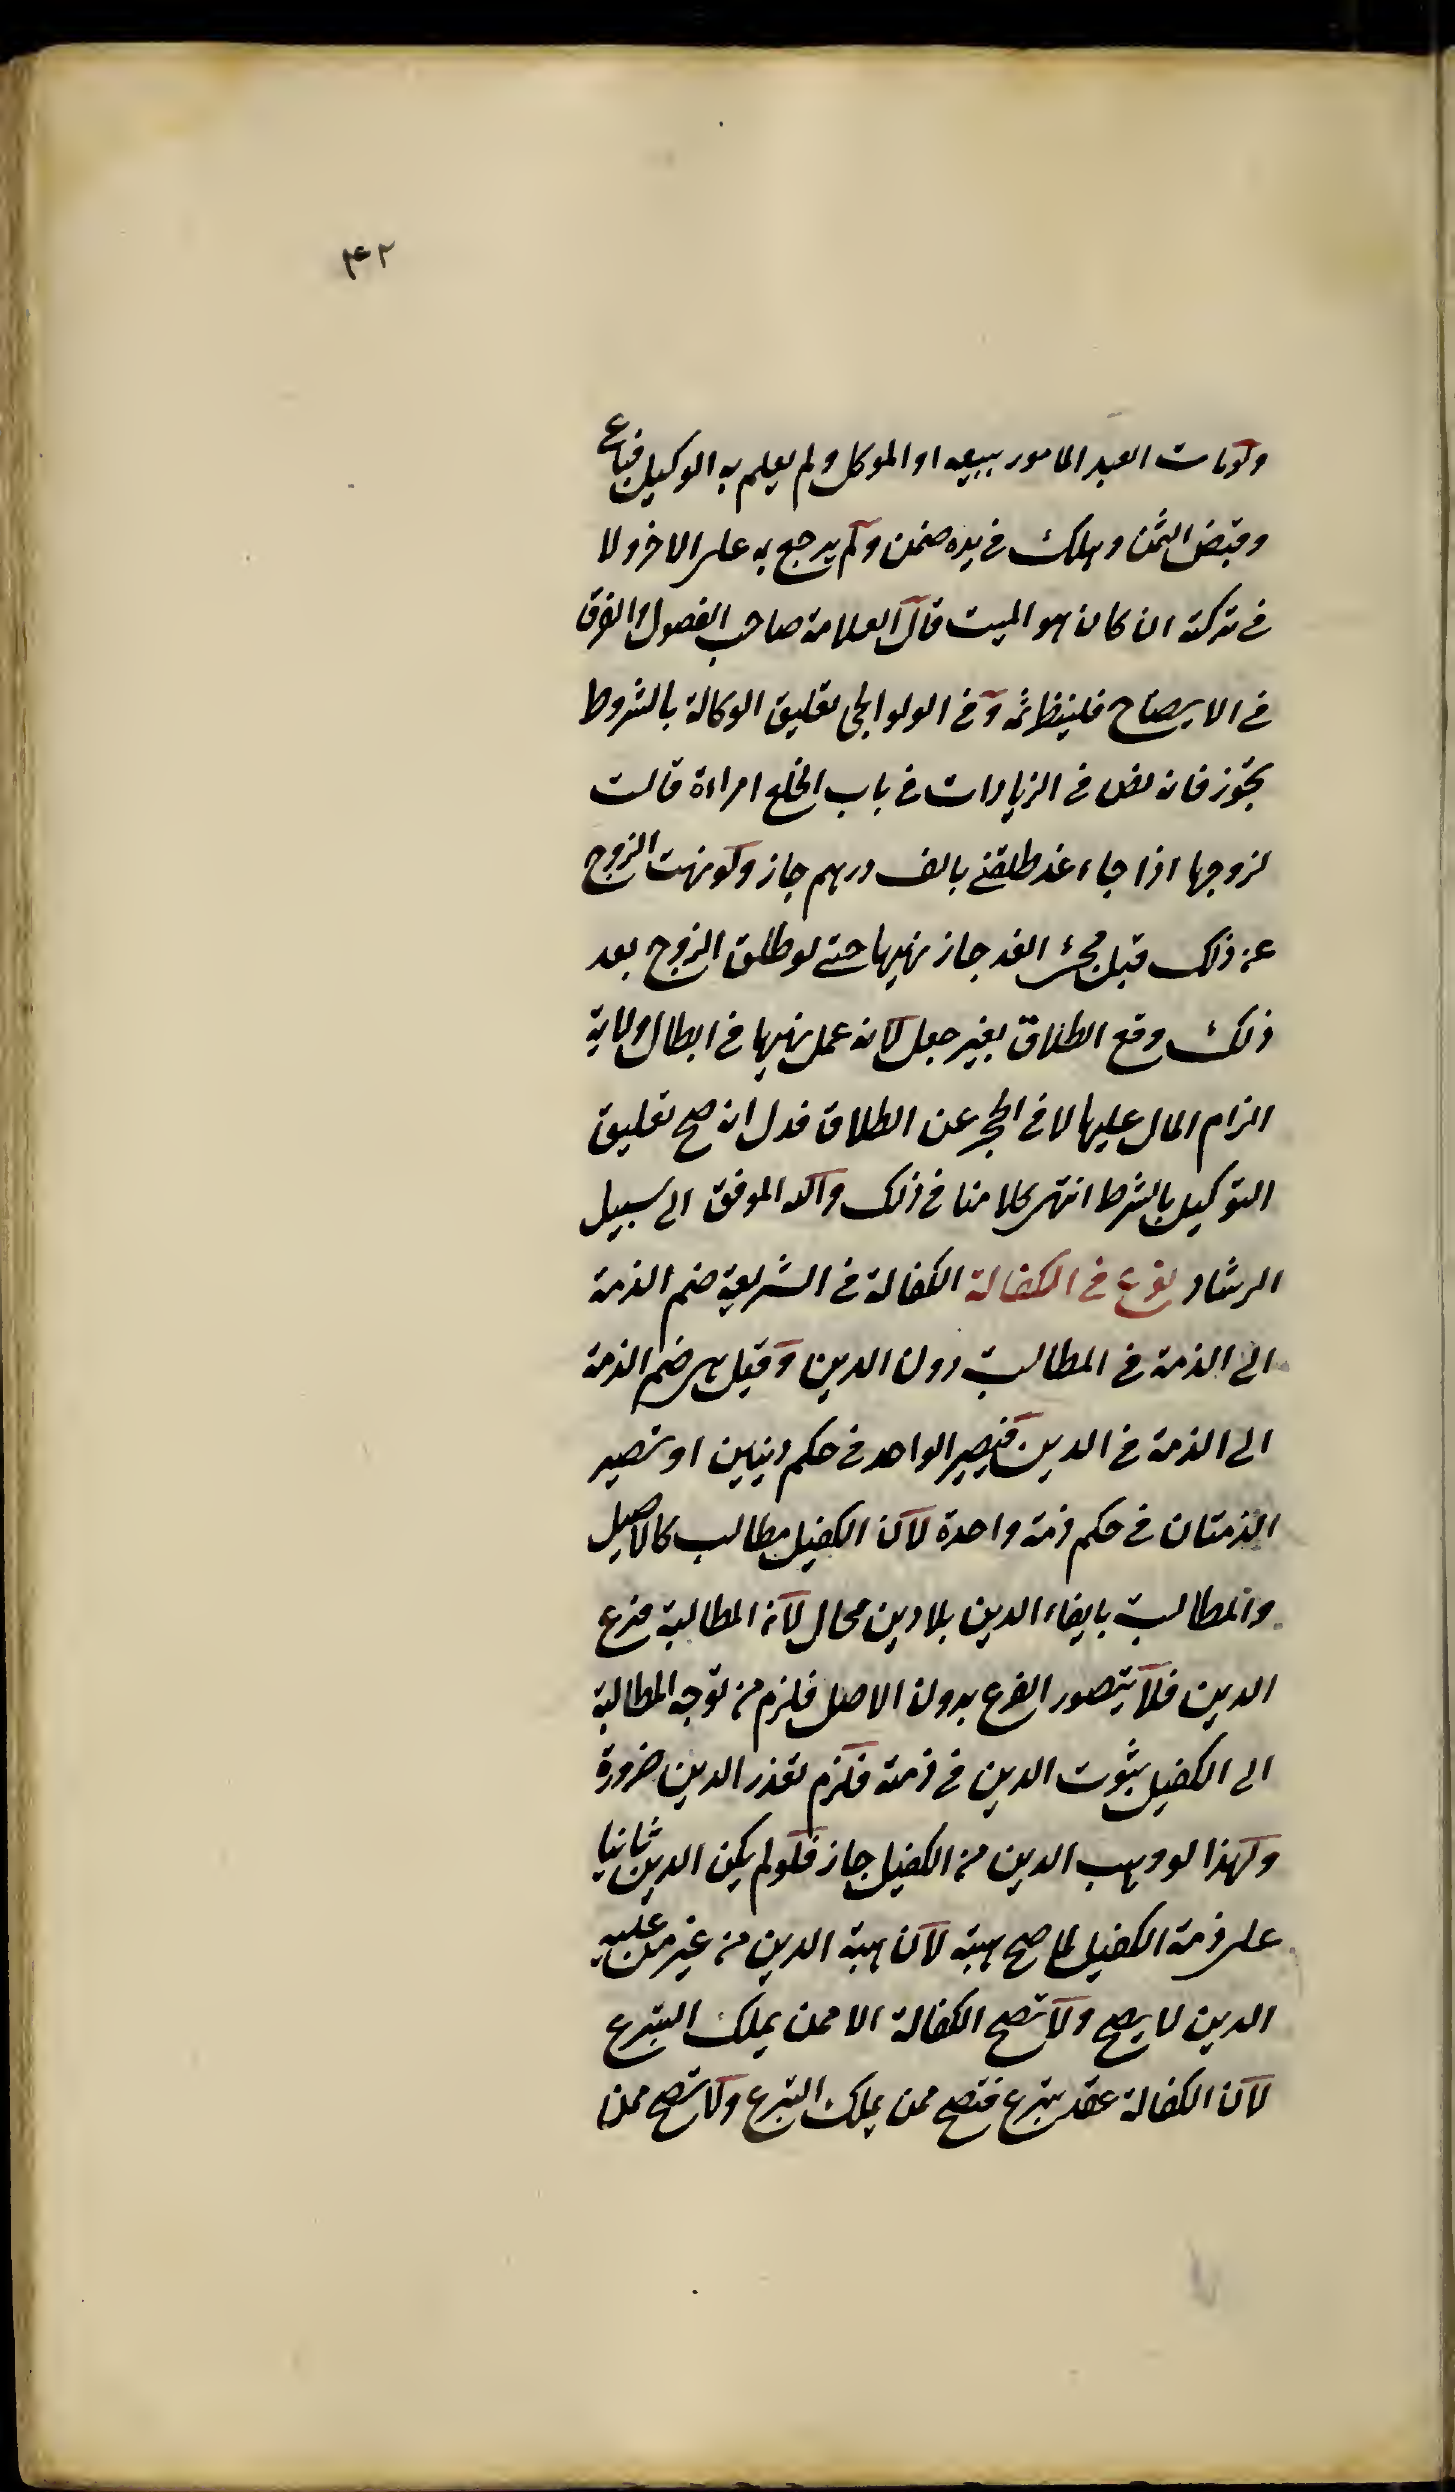 ۴۲
ولو مات العبد المامور ببيعه او الموكل ولم يعلم به الوكيل فباع
وقبض الثمن وهلك فى يده ضمن ولم يرجع به على الاخر ولا
فى تركته ان كان هو الميت قال العلامة صاحب الفصول والفرق
فى الايضاح فلينظر ثمه وفى الولوالجى تعليق الوكالة بالشروط
يجوز فانه نص فى الزيادات فى باب الخلع امراءة قالت
لزوجها اذا جاء غد طلقنى بالف درهم جاز ولو نهت الزوج
عن ذلك قبل مجئ الغد جاز نهيها حتى لو طلق الزوج بعد
ذلك وقع الطلاق بغير جعل لانه عمل نهيها فى ابطال ولاية
الزام المال عليها لا فى الحجر عن الطلاق فدل انه صح تعليق
التوكيل بالشرط انتهى كلامنا فى ذلك والله الموفق الى سبيل
الرشاد نوع فى الكفالة الكفالة فى الشريعة ضم الذمة
الى الذمة فى المطالبة دون الدين وقيل هى ضم الذمة
الى الذمة فى الدين فيصير الواحد فى حكم دينين او تصير
الذمتان فى حكم ذمة واحدة لان الكفيل مطالب كالاصيل
والمطالبة بايفاء الدين بلا دين محال لان المطالبة فرع
الدين فلا يتصور الفرع بدون الاصل فلزم من توجه المطالبة
الى الكفيل ثبوت الدين فى ذمته فلزم تعدد الدين ضرورة
ولهذا لو وهب الدين من الكفيل جاز فلو لم يكن الدين ثابتا
على ذمة الكفيل لما صح هبته لان هبة الدين من غير من عليه
الدين لا يصح ولا تصح الكفالة الا ممن يملك التبرع
لان الكفالة عقد تبرع فتصح ممن يملك التبرع ولا تصح ممن